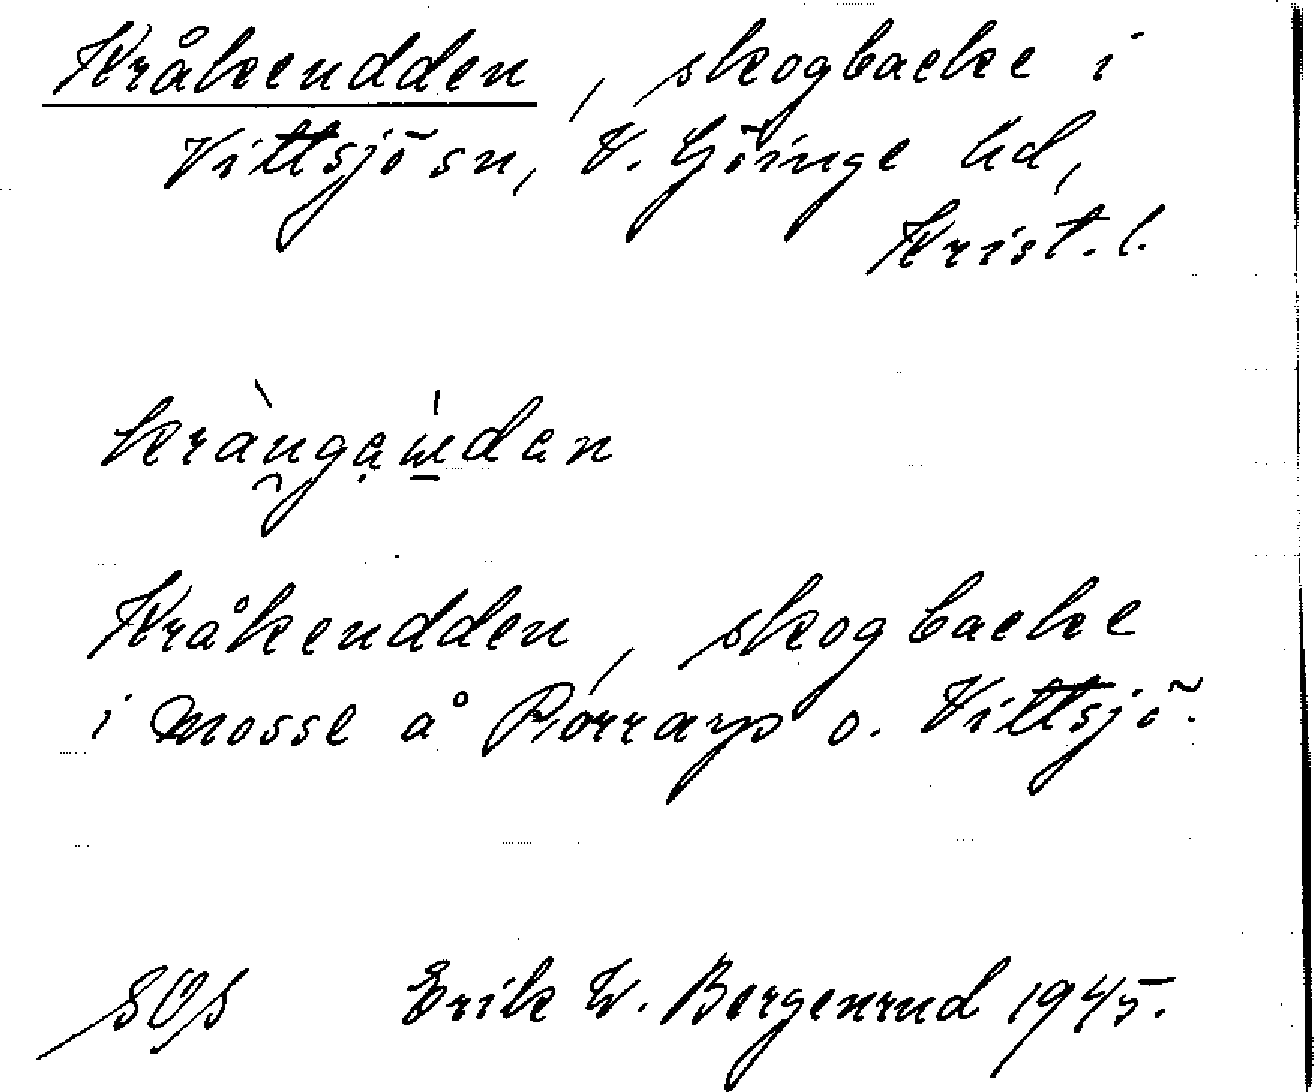 Kråkeudden, skogbacke i
Vittsjö sn, V. Göinge hd,
Krist. l.
Kråkeudden, skogbacke
i mosse å Pörrarp o. Vittsjö.
SOS Erik W. Bergenrud 1945.